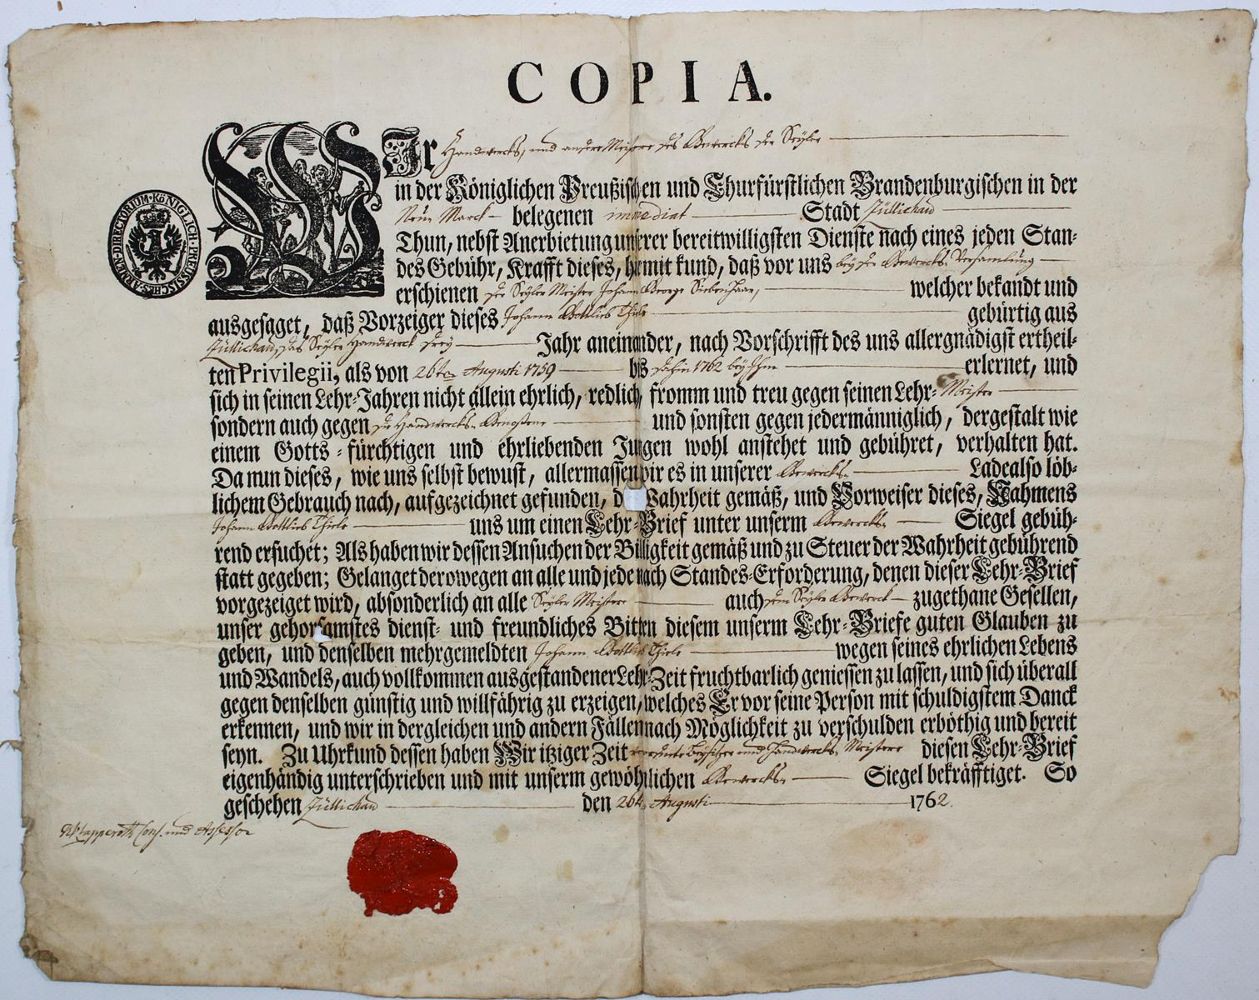 COPIA.
WIr Handwercks, und andere Meistere des Gewercks der Seyler
in der Königlichen Preußischen und Churfürstlichen Brandenburgischen in der
Neu Marck belegenen immediat Stadt Züllichau
Thun, nebst Anerbietung unserer bereitwilligsten Dienste nach eines jeden Stan-
des Gebühr, Krafft dieses, hiemit kund, daß vor uns bey der Gewercks Versamlung
erschienen der Seyler Meister Johann George welcher bekandt und
ausgesaget, daß Vorzeiger dieses Johann Gottlieb Thiele gebürtig aus
Züllichau, das Seyler Handwerck drey Jahr aneinander, nach Vorschrifft des uns allergnädigst ertheil-
ten Privilegii, als von 26ten Augusti 1759 bis dahin 1762 bey Ihm erlernet, und
sich in seinen Lehr-Jahren nicht allein ehrlich, redlich, fromm und treu gegen seinen Lehr-Meister
sondern auch gegen die Handwercks-Genossene und sonsten gegen jedermänniglich, dergestalt wie
einem Gotts-fürchtigen und ehrliebenden Jungen wohl anstehet und gebühret, verhalten hat.
Da nun dieses, wie uns selbst bewust, allermassen wir es in unserer Gewercks- Lade also löb-
lichem Gebrauch nach, aufgezeichnet gefunden, der Wahrheit gemäß, und Vorweiser dieses, Nahmens
Johann Gottlieb Thiele uns um einen Lehr-Brief unter unserm Gewercks Siegel gebüh-
rend ersuchet; Als haben wir dessen Ansuchen der Billigkeit gemäß und zu Steuer der Wahrheit gebührend
statt gegeben; Gelanget derowegen an alle und jede nach Standes-Erforderung, denen dieser Lehr-Brief
vorgezeiget wird, absonderlich an alle Seyler Meistere auch dem Seyler Gewerck zugethane Gesellen,
unser gehorsamstes dienst- und freundliches Bitten diesem unserm Lehr-Briefe guten Glauben zu
geben, und denselben mehrgemeldten Johann Gottlieb Thiele wegen seines ehrlichen Lebens
und Wandels, auch vollkommen ausgestandener Lehr-Zeit fruchtbarlich geniessen zu lassen, und sich überall
gegen denselben günstig und willfährig zu erzeigen, welches Er vor seine Person mit schuldigstem Danck
erkennen, und wir in dergleichen und andern Fällen nach Möglichkeit zu verschulden erböthig und bereit
seyn. Zu Uhrkund dessen haben Wir itziger Zeit verordnete Beysitzer und Handwercks-Meistere diesen Lehr-Brief
eigenhändig unterschrieben und mit unserm gewöhnlichen Gewercks- Siegel bekräfftiget. So
geschehen Züllichau den 26ten Augusti 1762.
und Assessor